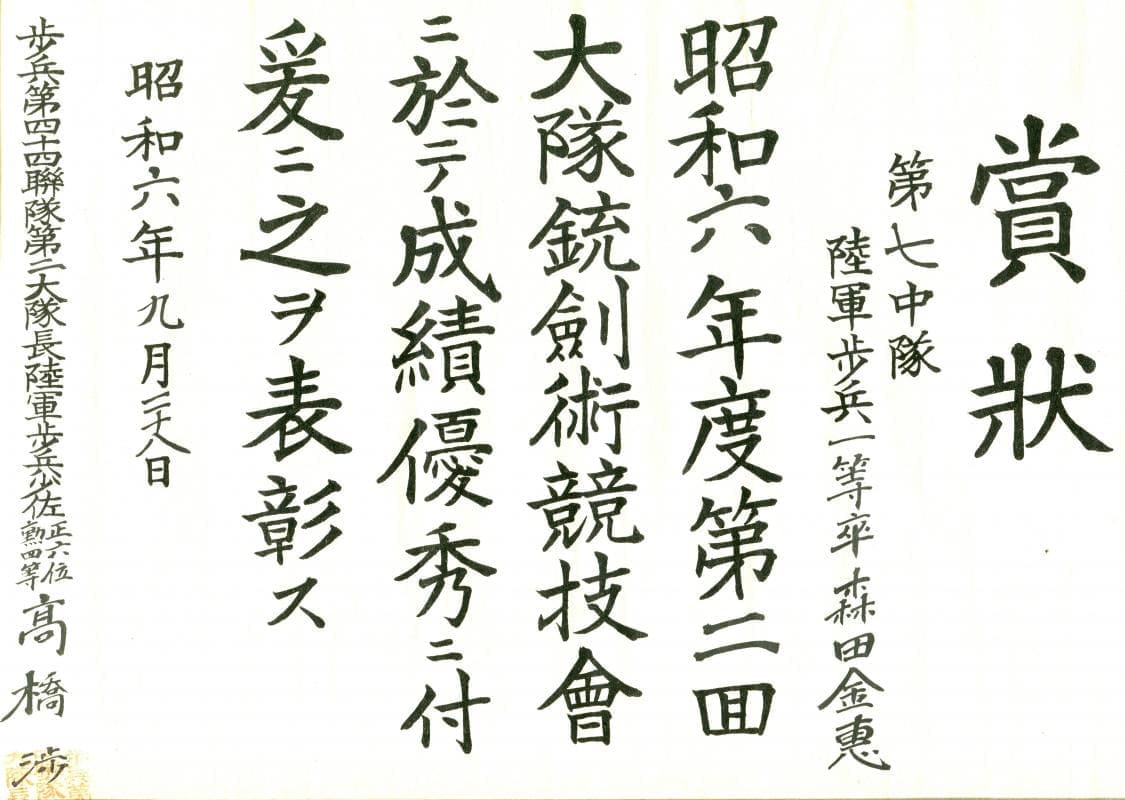 賞狀
第七中隊
陸軍歩兵一等卒森田金惠
昭和六年度第二囘
大隊銃劍術競技會
ニ於テ成績優秀ニ付
爰ニ之ヲ表彰ス
昭和六年九月二十八日
歩兵第四十四聯隊第二大隊長陸軍歩兵少佐正六位勲四等高橋渉